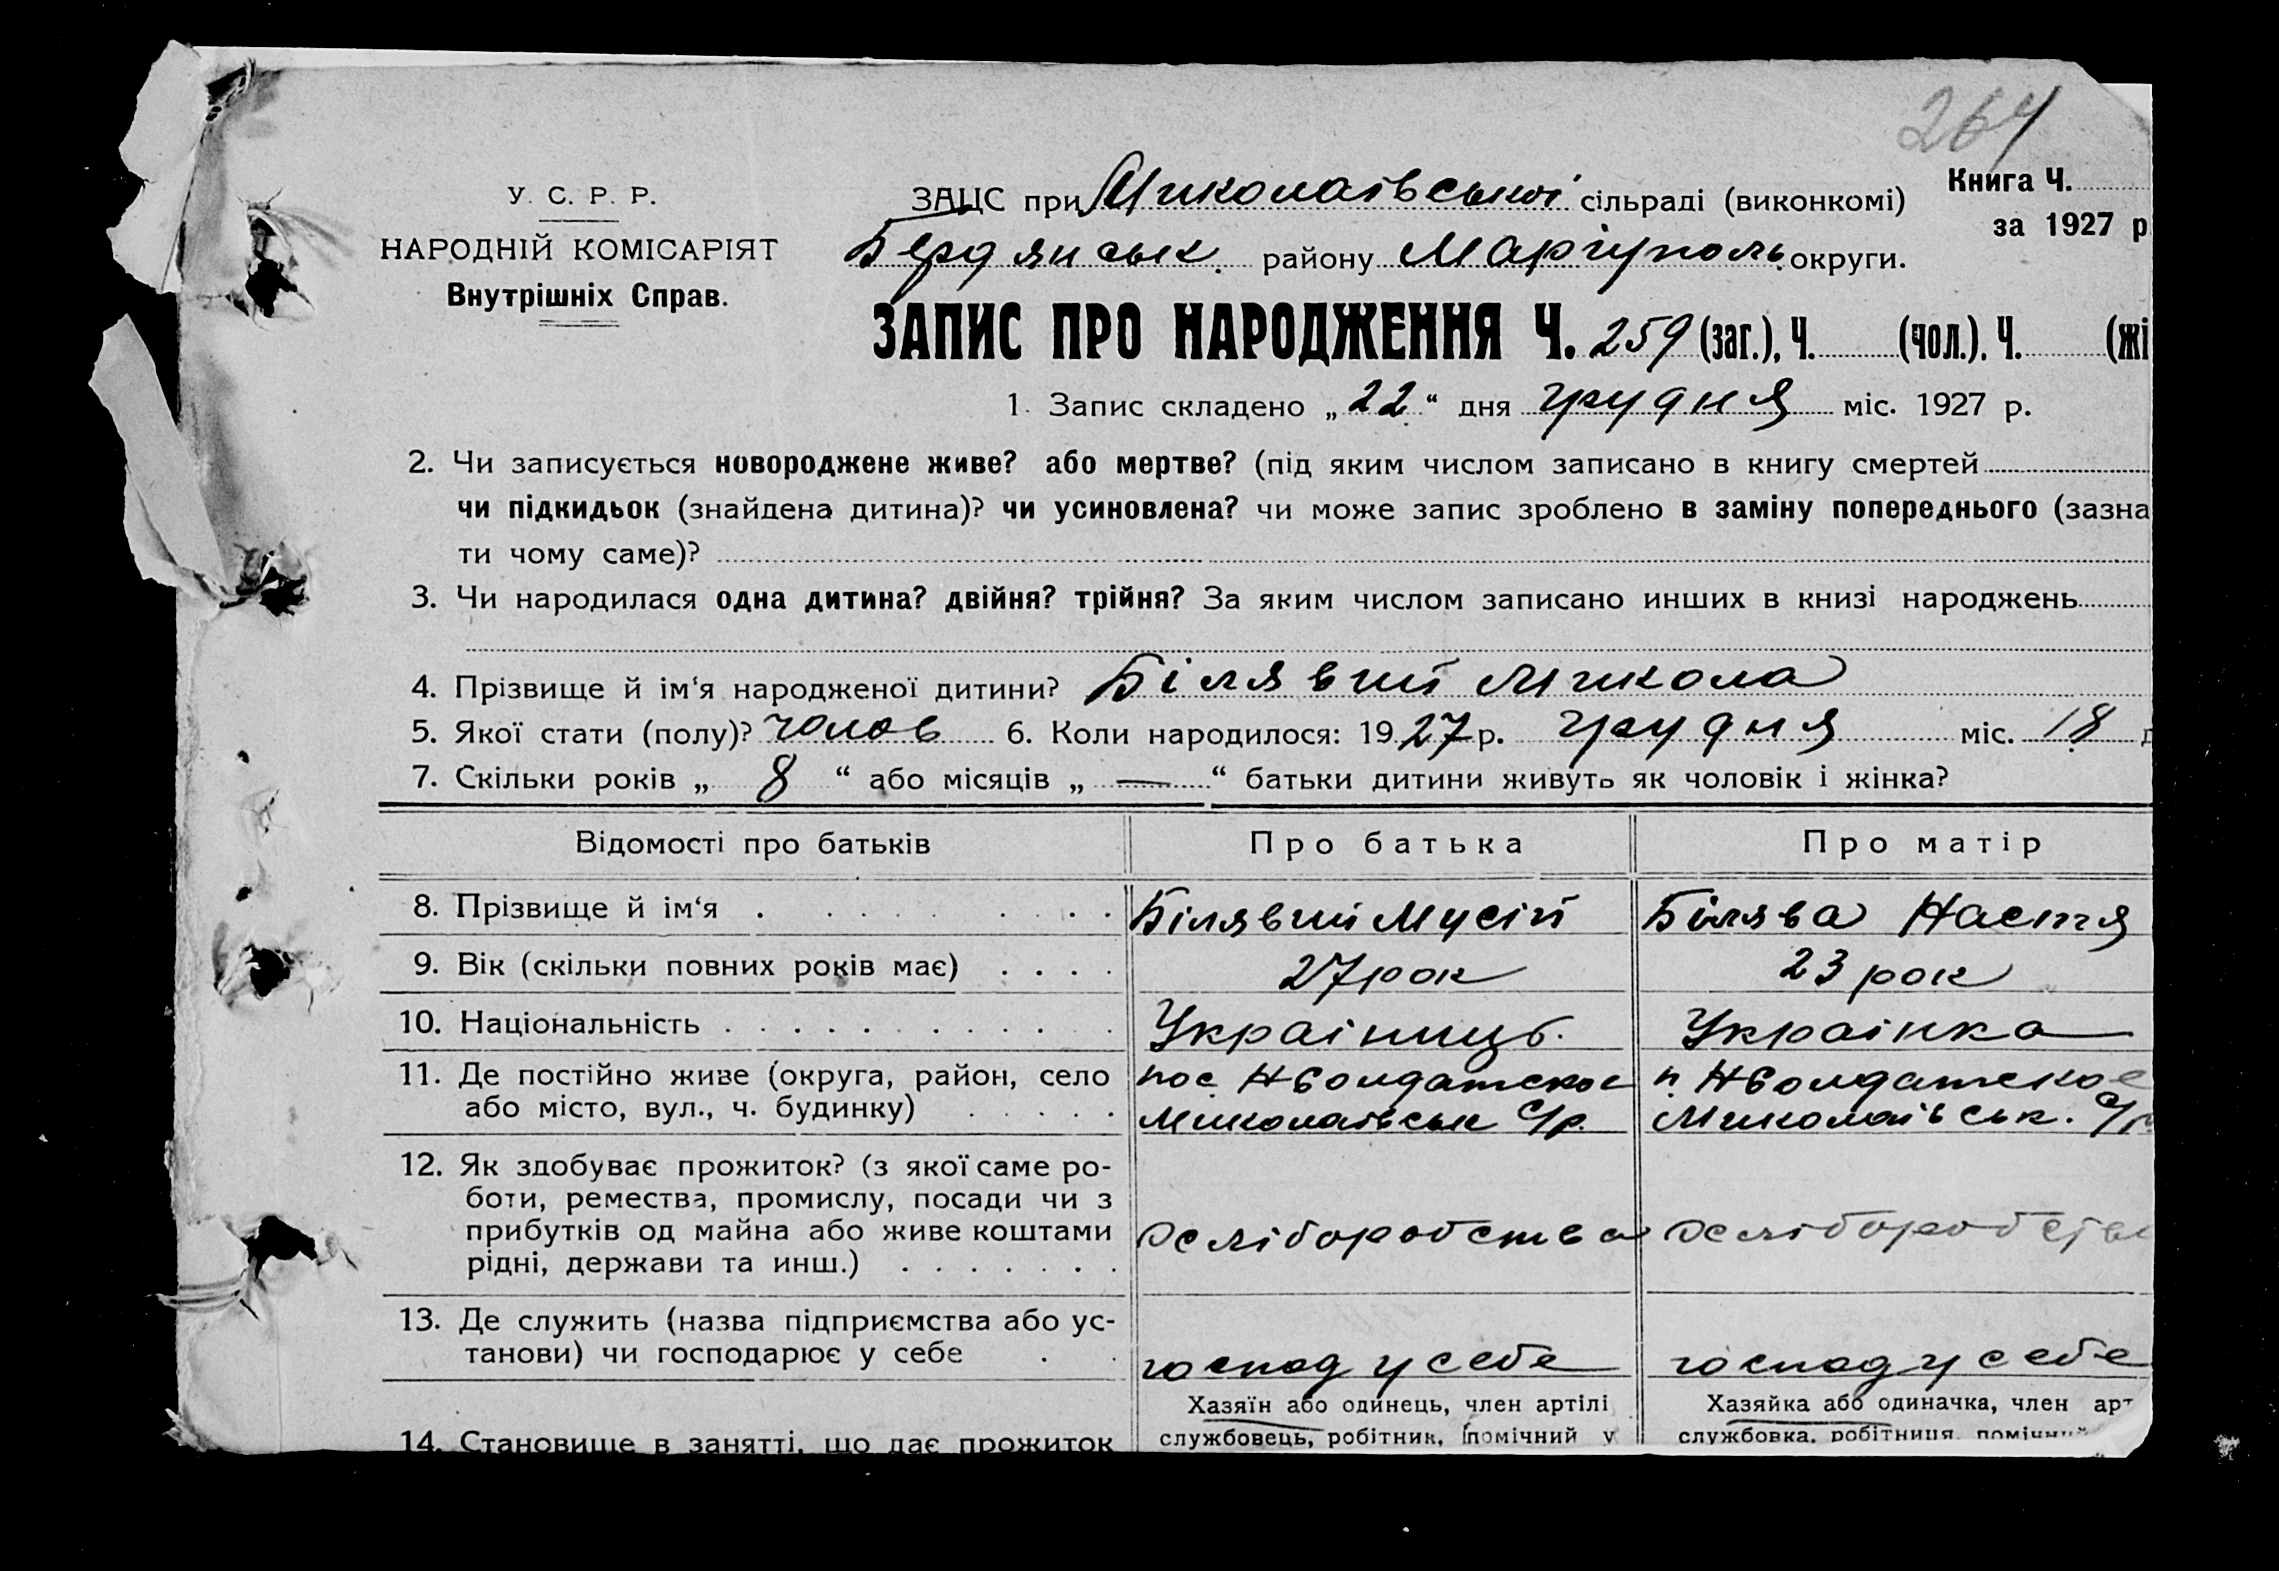 264
У. С. Р. Р.
НАРОДНІЙ КОМІСАРІЯТ
Внутрішніх Справ.
ЗАЦС при Миколаівської сільраді (виконкомі)
Бердянськ. району Маріуполь. округи.
Книга Ч.
за 1927 р
ЗАПИС ПРО НАРОДЖЕННЯ Ч. 259 (заг.), Ч. (чол.), Ч. (жі
1. Запис складено „22“ дня грудня міс. 1927 р.
2. Чи записується новороджене живе? або мертве? (під яким числом записано в книгу смертей
чи підкидьок (знайдена дитина)? чи усиновлена? чи може запис зроблено в заміну попереднього (зазна
ти чому саме)?
3. Чи народилася одна дитина? двійня? трійня? За яким числом записано инших в книзі народжень
4. Прізвище й ім‘я народженої дитини? Білявий Микола
5. Якої стати (полу)? чолов 6. Коли народилося: 1927 р. грудня міс. 18 д
7. Скільки років „ 8 “ або місяців „ — “ батьки дитини живуть як чоловік і жінка?
Відомості про батьків Про батька Про матір
8. Прізвище й ім‘я Білявий Мусій Білява Настя
9. Вік (скільки повних років має) 27 рок 23 рок
10. Національність Украінець. Украінка
11. Де постійно живе (округа, район, село пос Нсолдатское п Нсолдатское
або місто, вул., ч. будинку) Миколаівськ с/р. Миколаівськ. с/р.
12. Як здобуває прожиток? (з якої саме ро-
боти, ремества, промислу, посади чи з
прибутків од майна або живе коштами хліборобства хліборобства
рідні, держави та инш.)
13. Де служить (назва підприємства або ус-
танови) чи господарює у себе господ у себе господ у себе
14. Становище в занятті, що дає прожиток
Хазяїн або одинець, член артілі Хазяйка або одиначка, член арт
службовець, робітник, помічний у службовка, робітниця, помічний